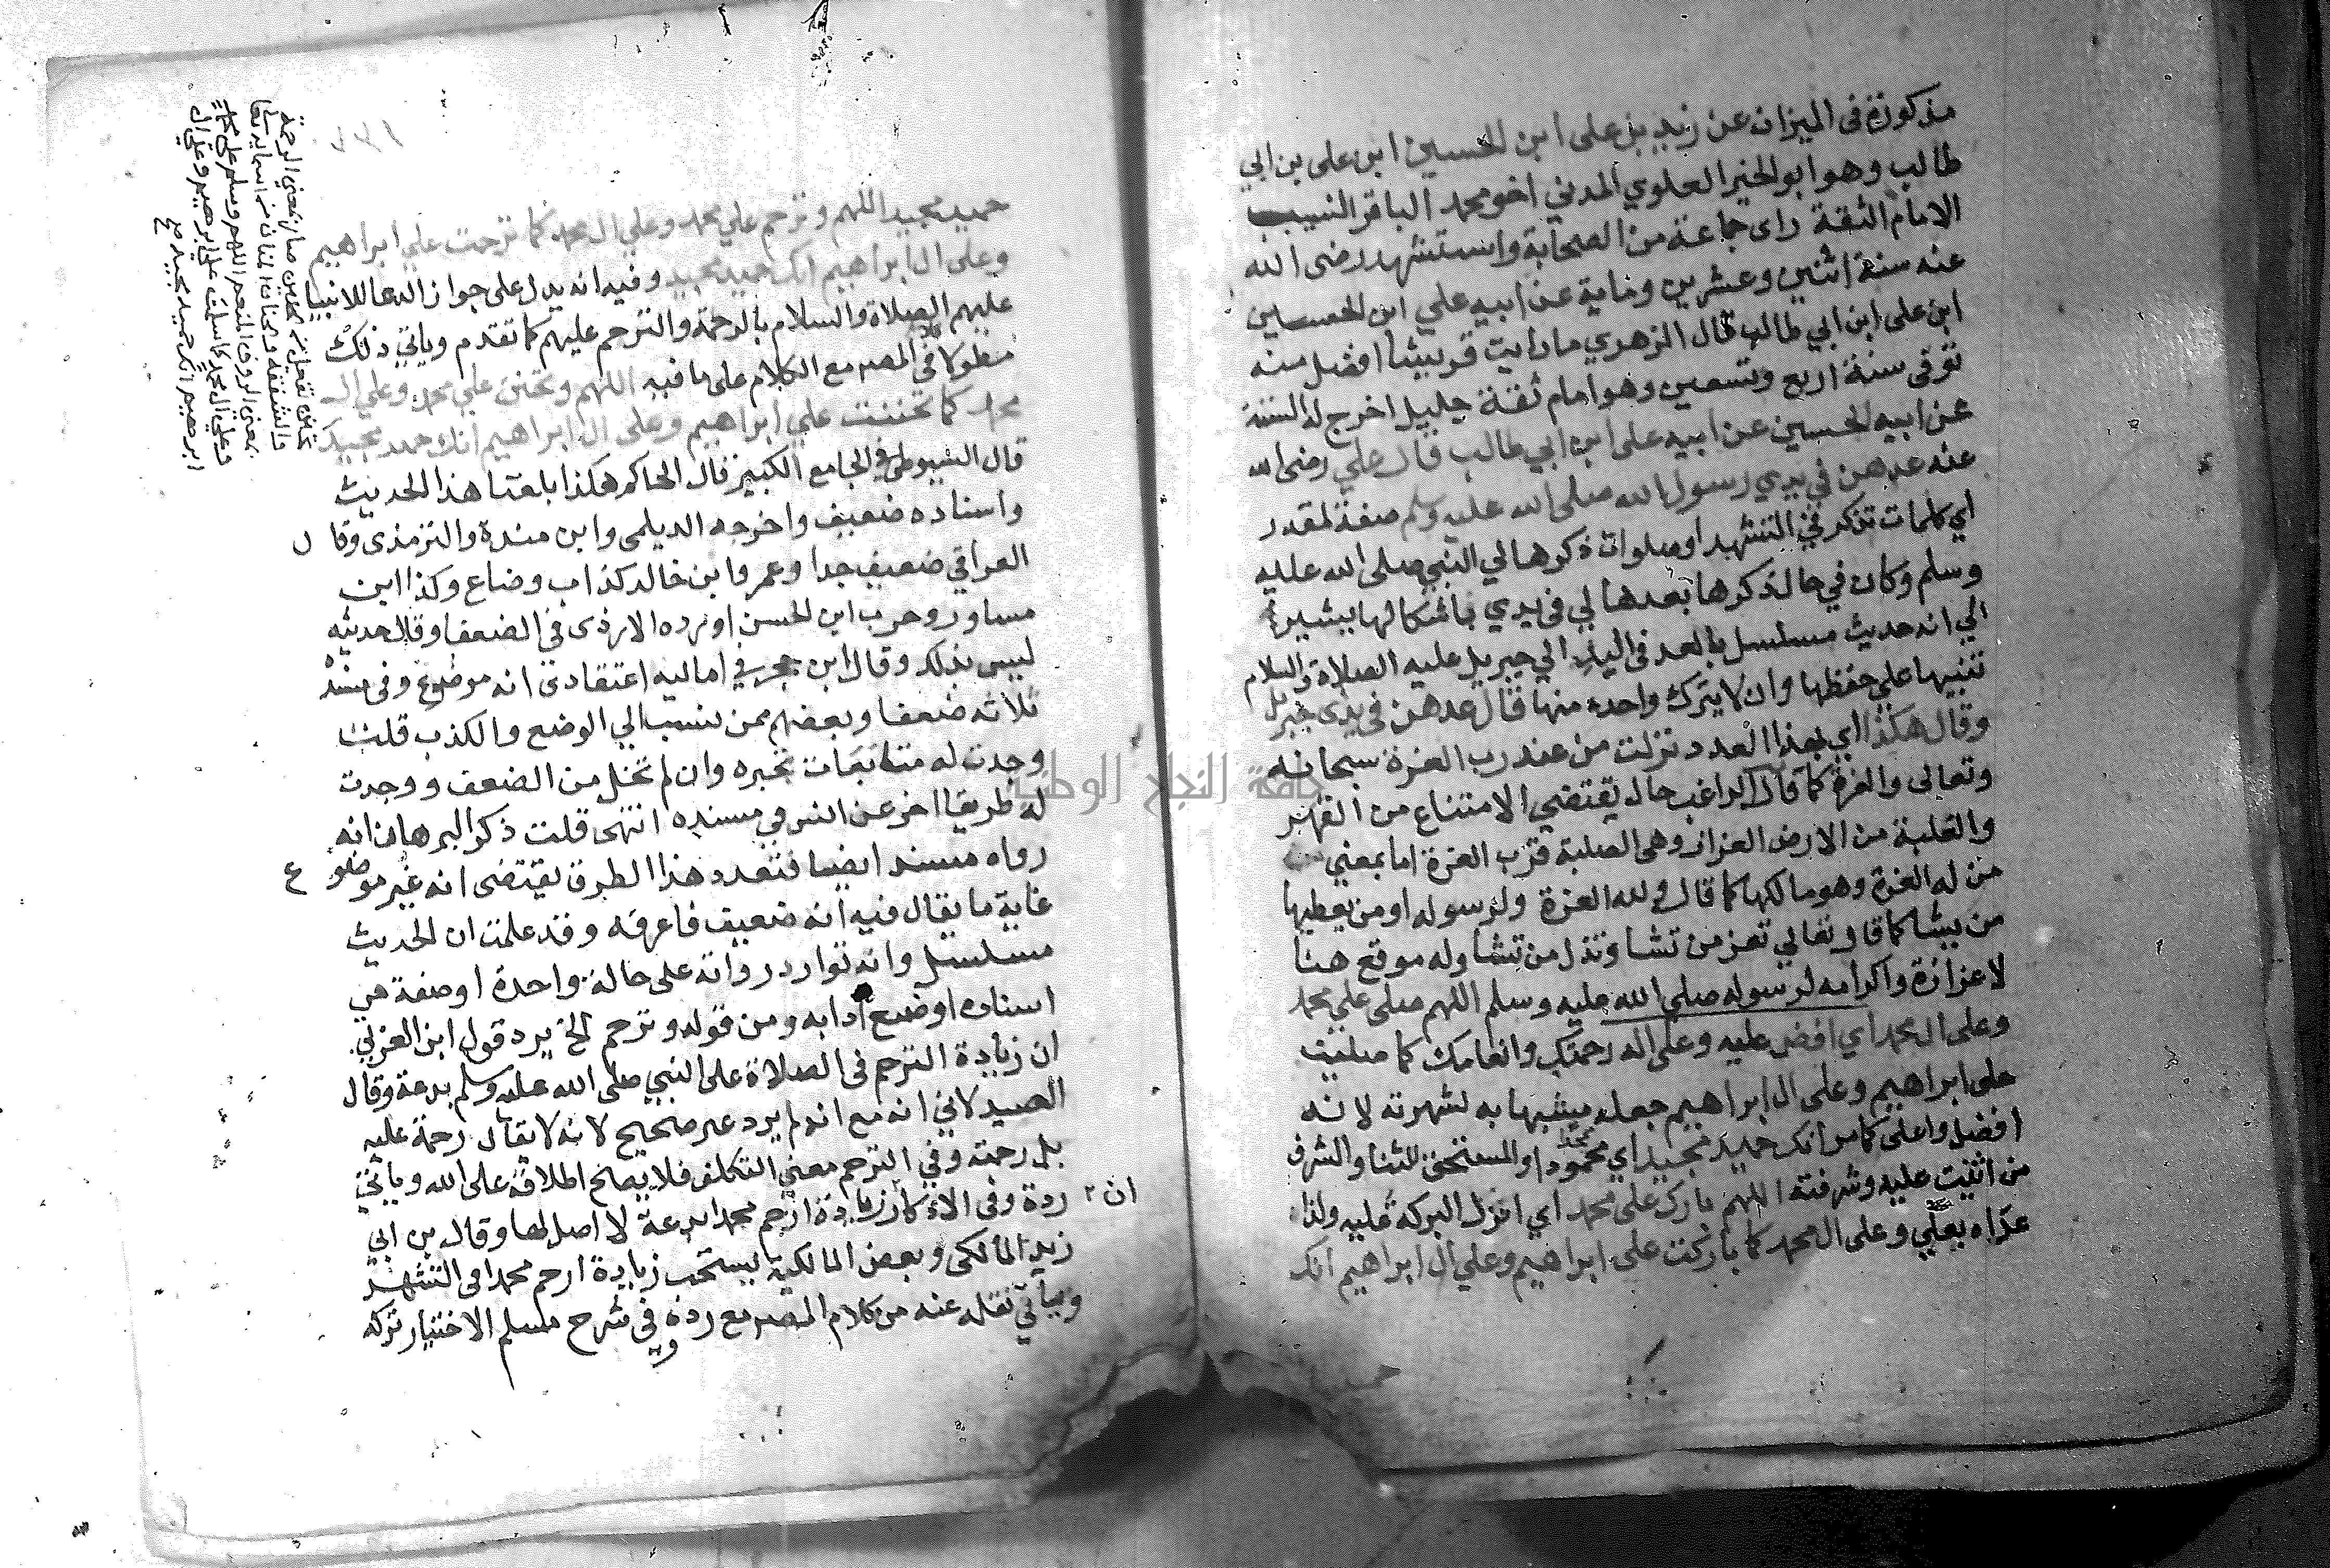 مذكورة فى الميزان عن زيد بن على ابن الحسين ابن على بن ابي
طالب وهو ابو الحنير العلوي المدني اخو محمد الباقر النسيب
الامام الثقة راى جماعة من الصحابة واستشهد رضى الله
عنه سنة اثنين وعشرين وماية عن ابيه علي ابن الحسين
ابن على ابن ابي طالب قال الزهري ما رايت قريشيا افضل منه
توقى سنة اربع وتسعين وهو امام ثقة جليل اخرج له الستة
عن ابيه الحسين عن ابيه على ابن ابي طالب قال علي رضى الله
عنه عدهن في يدي رسول الله صلى الله عليه وسلم صفة لمقدر
اي كلمات تذكر في التشهد او صلوات ذكرها لي النبي صلى الله عليه
وسلم وكان في حال ذكرها بعدها لي فى يدي باشكالها يشير
الي انه حديث مسلسل بالعد فى اليد الي جبريل عليه الصلاة والسلام
تنبيها علي حفظها وان لا يترك واحدة منها قال عدهن فى يدى جبريل
وقال هكذا اي بهذا العدد نزلت من عند رب العزة سبحانه
وتعالى والعزة كما قال الراغب حال يقتضي الامتناع من القهر
والغلبة من الارض العزاز وهى الصلبة فرب العزة اما بمعني
من له العزة وهو مالكها كما قال ولله العزة ولرسوله او من يعطيها
من يشا كما قال تعالي تعز من تشا وتذل من تشا وله موقع هنا
لاعزازة واكرامه لرسوله صلى الله عليه وسلم اللهم صلى علي محمد
وعلى ال محمد اي افض عليه وعلى اله رحمتك وانعامك كما صليت
على ابراهيم وعلى ال ابراهيم جعله مشبها به لشهرته لانه
افضل واعلى كما مر انك حميد مجيد اي محمود او المستحق للثنا والشرف
من اثنيت عليه وشرفته اللهم بارك على محمد اي انزل البركه عليه ولذا
عداه بعلي وعلى ال محمد كما باركت على ابراهيم وعلي ال ابراهيم انك
حميد مجيد اللهم وترحم علي محمد وعلي ال محمد كما ترحمت علي ابراهيم
وعلى ال ابراهيم انك حميد مجيد وفيه انه يدل على جواز الدعا للانبيا
عليهم الصلاة والسلام بالرحمة والترحم عليهم كما تقدم وياتي ذلك
منقولا فى المصر مع الكلام على ما فيه اللهم وتحنن علي محمد وعلي ال
محمد كما تحننت علي ابراهيم وعلى ال ابراهيم انك حميد مجيد
قال السيوطى فى الجامع الكبير قال الحاكم هكذا بلغنا هذا الحديث
واسناده ضعيف واخرجه الديلمى وابن مندة والترمذى وقال
العراقي ضعيف جدا وعمرو ابن خالد كذاب وضاع وكذا ابن
مساور وحرب ابن الحسن اورده الازدى فى الضعفا وقال حديثه
ليس بذلك وقال ابن حجر في اماليه اعتقادى انه موضوع وفى سنده
ثلاثه ضعفا وبعضهم ممن ينسب الي الوضع والكذب قلت
وجدت له متابعات تجبره وان لم تخل من الضعف ووجدت
له طريقا اخر عن انس وفي مسنده انتهى قلت ذكر البرهان انه
رواه مسند ايضا فتعدد هذا الطرق يقتضى انه غير موضوع
غاية ما يقال فيه انه ضعيف فاعرفه وقد علمت ان الحديث
مسلسل وانه توارد رواته على حالة واحدة او صفة في
اسناده او ضع ادابه ومن قوله وترحم الخ يرد قول ابن العربي
ان زيادة الترحم فى الصلاة على النبي صلى الله عليه وسلم بدعة وقال
الصيدلاني انه مع انه لم يرد غير صحيح لانه لا يقال رحمة عليه
بل رحمته وفي الترحم معني التكلف فلا يصلح اطلاقه على الله وياتي
رده وفى الاذكار ان زيادة ارحم محمدا بدعة لا اصل لها وقال بن ابي
زيد المالكى وبعض المالكية يستحب زيادة ارحم محمدا فى التشهد
وسيأتي نقله عنه من كلام المصر مع رده وفى شرح مسلم الاختيار تركه
جامعة النجاح الوطنية